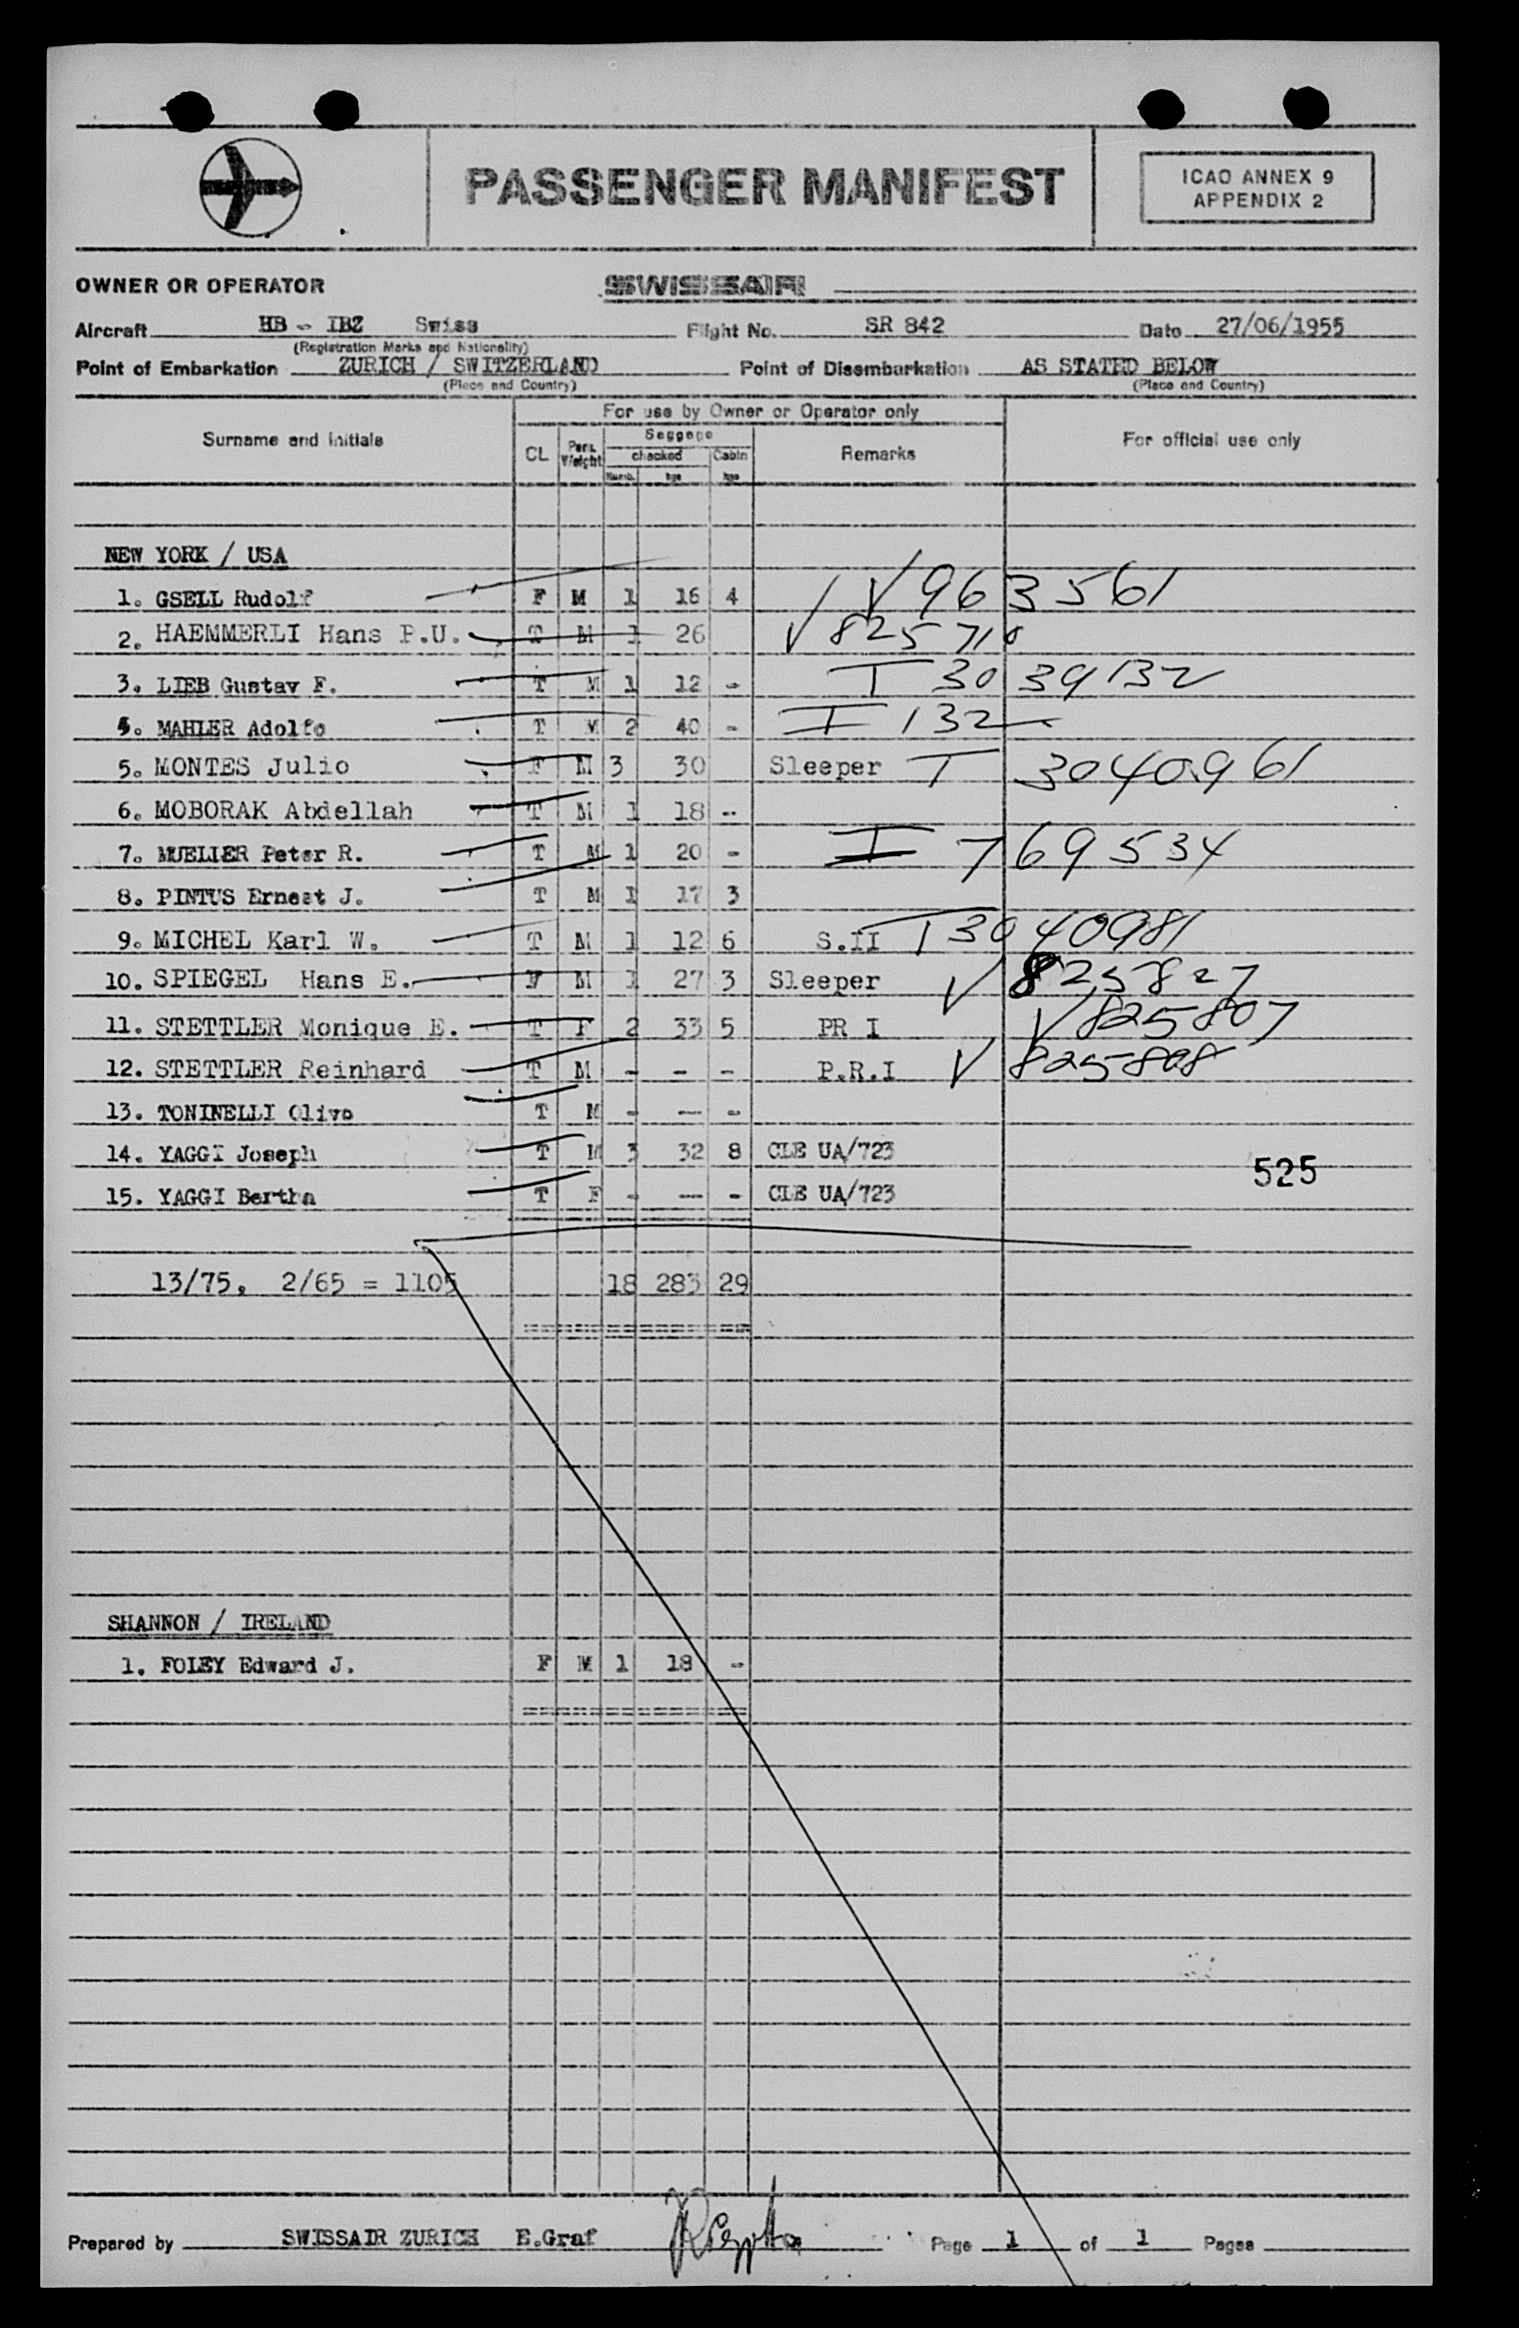 PASSENGER MANIFEST
ICAO ANNEX 9
APPENDIX 2
OWNER OR OPERATOR SWISSAIR
Aircraft HB - IBZ Swiss Flight No. SR 842 Date 27/06/1955
(Registration Marks and Nationality)
Point of Embarkation ZURICH / SWITZERLAND Point of Disembarkation AS STATED BELOW
(Place and Country) (Place and Country)
For use by Owner or Operator only
Surname and initials CL Pers. Weight Baggage checked Numb. kgs Cabin kgs Remarks For official use only
NEW YORK / USA
1. GSELL Rudolf F M 1 16 4 V 963561
2. HAEMMERLI Hans P.U. T M 1 26 V 825710
3. LIEB Gustav F. T M 1 12 - T 3039132
4. MAHLER Adolfo T M 2 40 - I 132
5. MONTES Julio F M 3 30 Sleeper T 3040961
6. MOBORAK Abdellah T M 1 18 --
7. MUELLER Peter R. T M 1 20 - I 769534
8. PINTUS Ernest J. T M 1 17 3
9. MICHEL Karl W. T M 1 12 6 S.II T3040981
10. SPIEGEL Hans E. F M 1 27 3 Sleeper V 825827
11. STETTLER Monique E. T F 2 33 5 PR I V 825807
12. STETTLER Reinhard T M - - - P.R.I V 825808
13. TONINELLI Olivo T M - -- -
14. YAGGI Joseph T M 3 32 8 CLE UA/723
525
15. YAGGI Bertha T F - -- - CLE UA/723
13/75, 2/65 = 1105 18 283 29
====================
SHANNON / IRELAND
1. FOLEY Edward J. F M 1 18 -
====================
Prepared by SWISSAIR ZURICH E.Graf Page 1 of 1 Pages